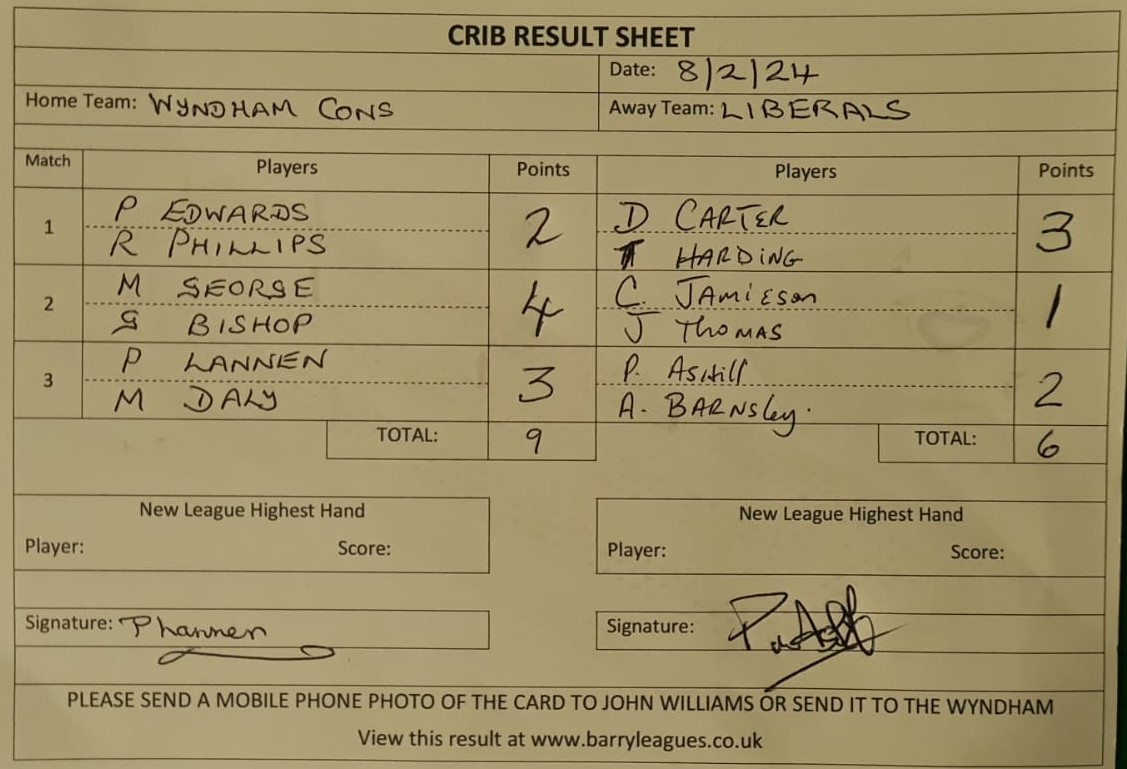 CRIB RESULT SHEET
Date: 8/2/24
Home Team: WYNDHAM CONS
Away Team: LIBERALS
Match Players Points Players Points
1
P EDWARDS
R PHILLIPS
2
D CARTER
T HARDING
3
2
M GEORGE
G BISHOP
4
C. JAMIESON
J THOMAS
1
3
P LANNEN
M DALY
3
P. ASHill
A. BARNSley.
2
TOTAL: 9
TOTAL: 6
New League Highest Hand
Player: Score:
New League Highest Hand
Player: Score:
Signature: P Lannen
Signature:
PLEASE SEND A MOBILE PHONE PHOTO OF THE CARD TO JOHN WILLIAMS OR SEND IT TO THE WYNDHAM
View this result at www.barryleagues.co.uk